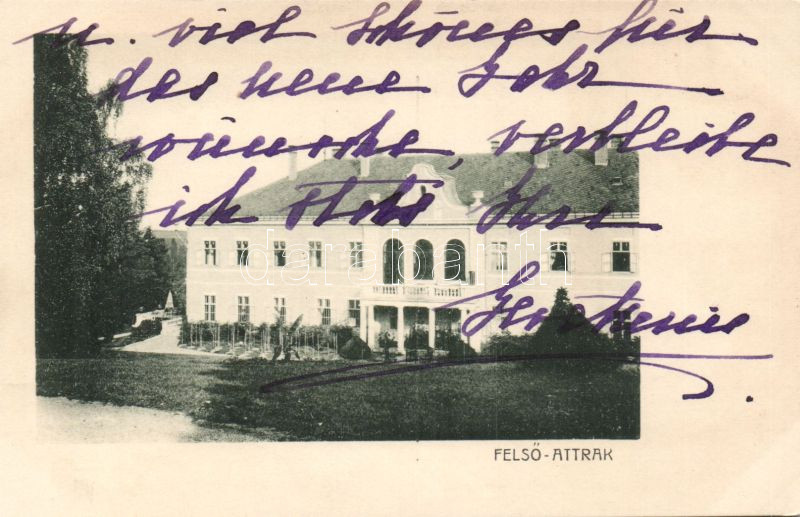 u. viel Schönes für
das neue Jahr
wünsche, verbleibe
ich stets Ihre
darabanth
FELSŐ-ATTRAK